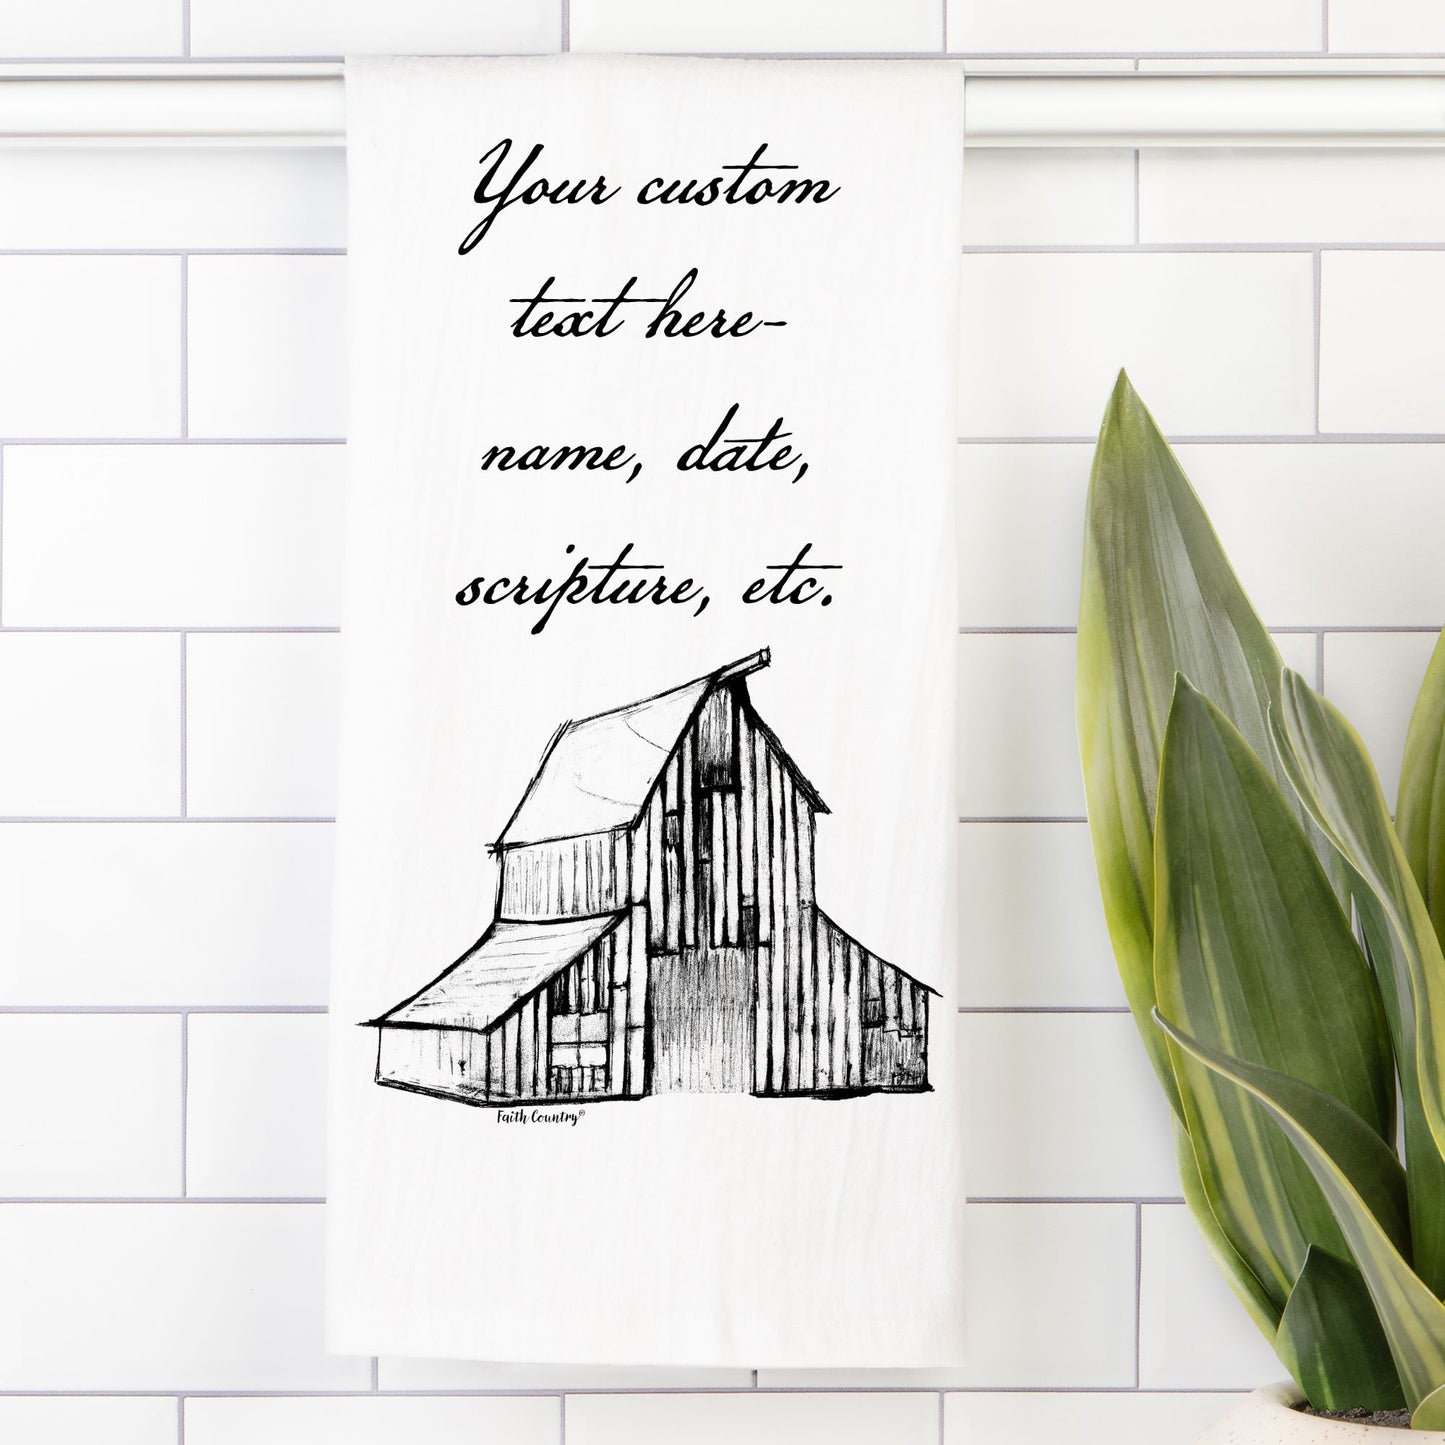 Your custom
text here-
name, date,
scripture, etc.
Faith Country®